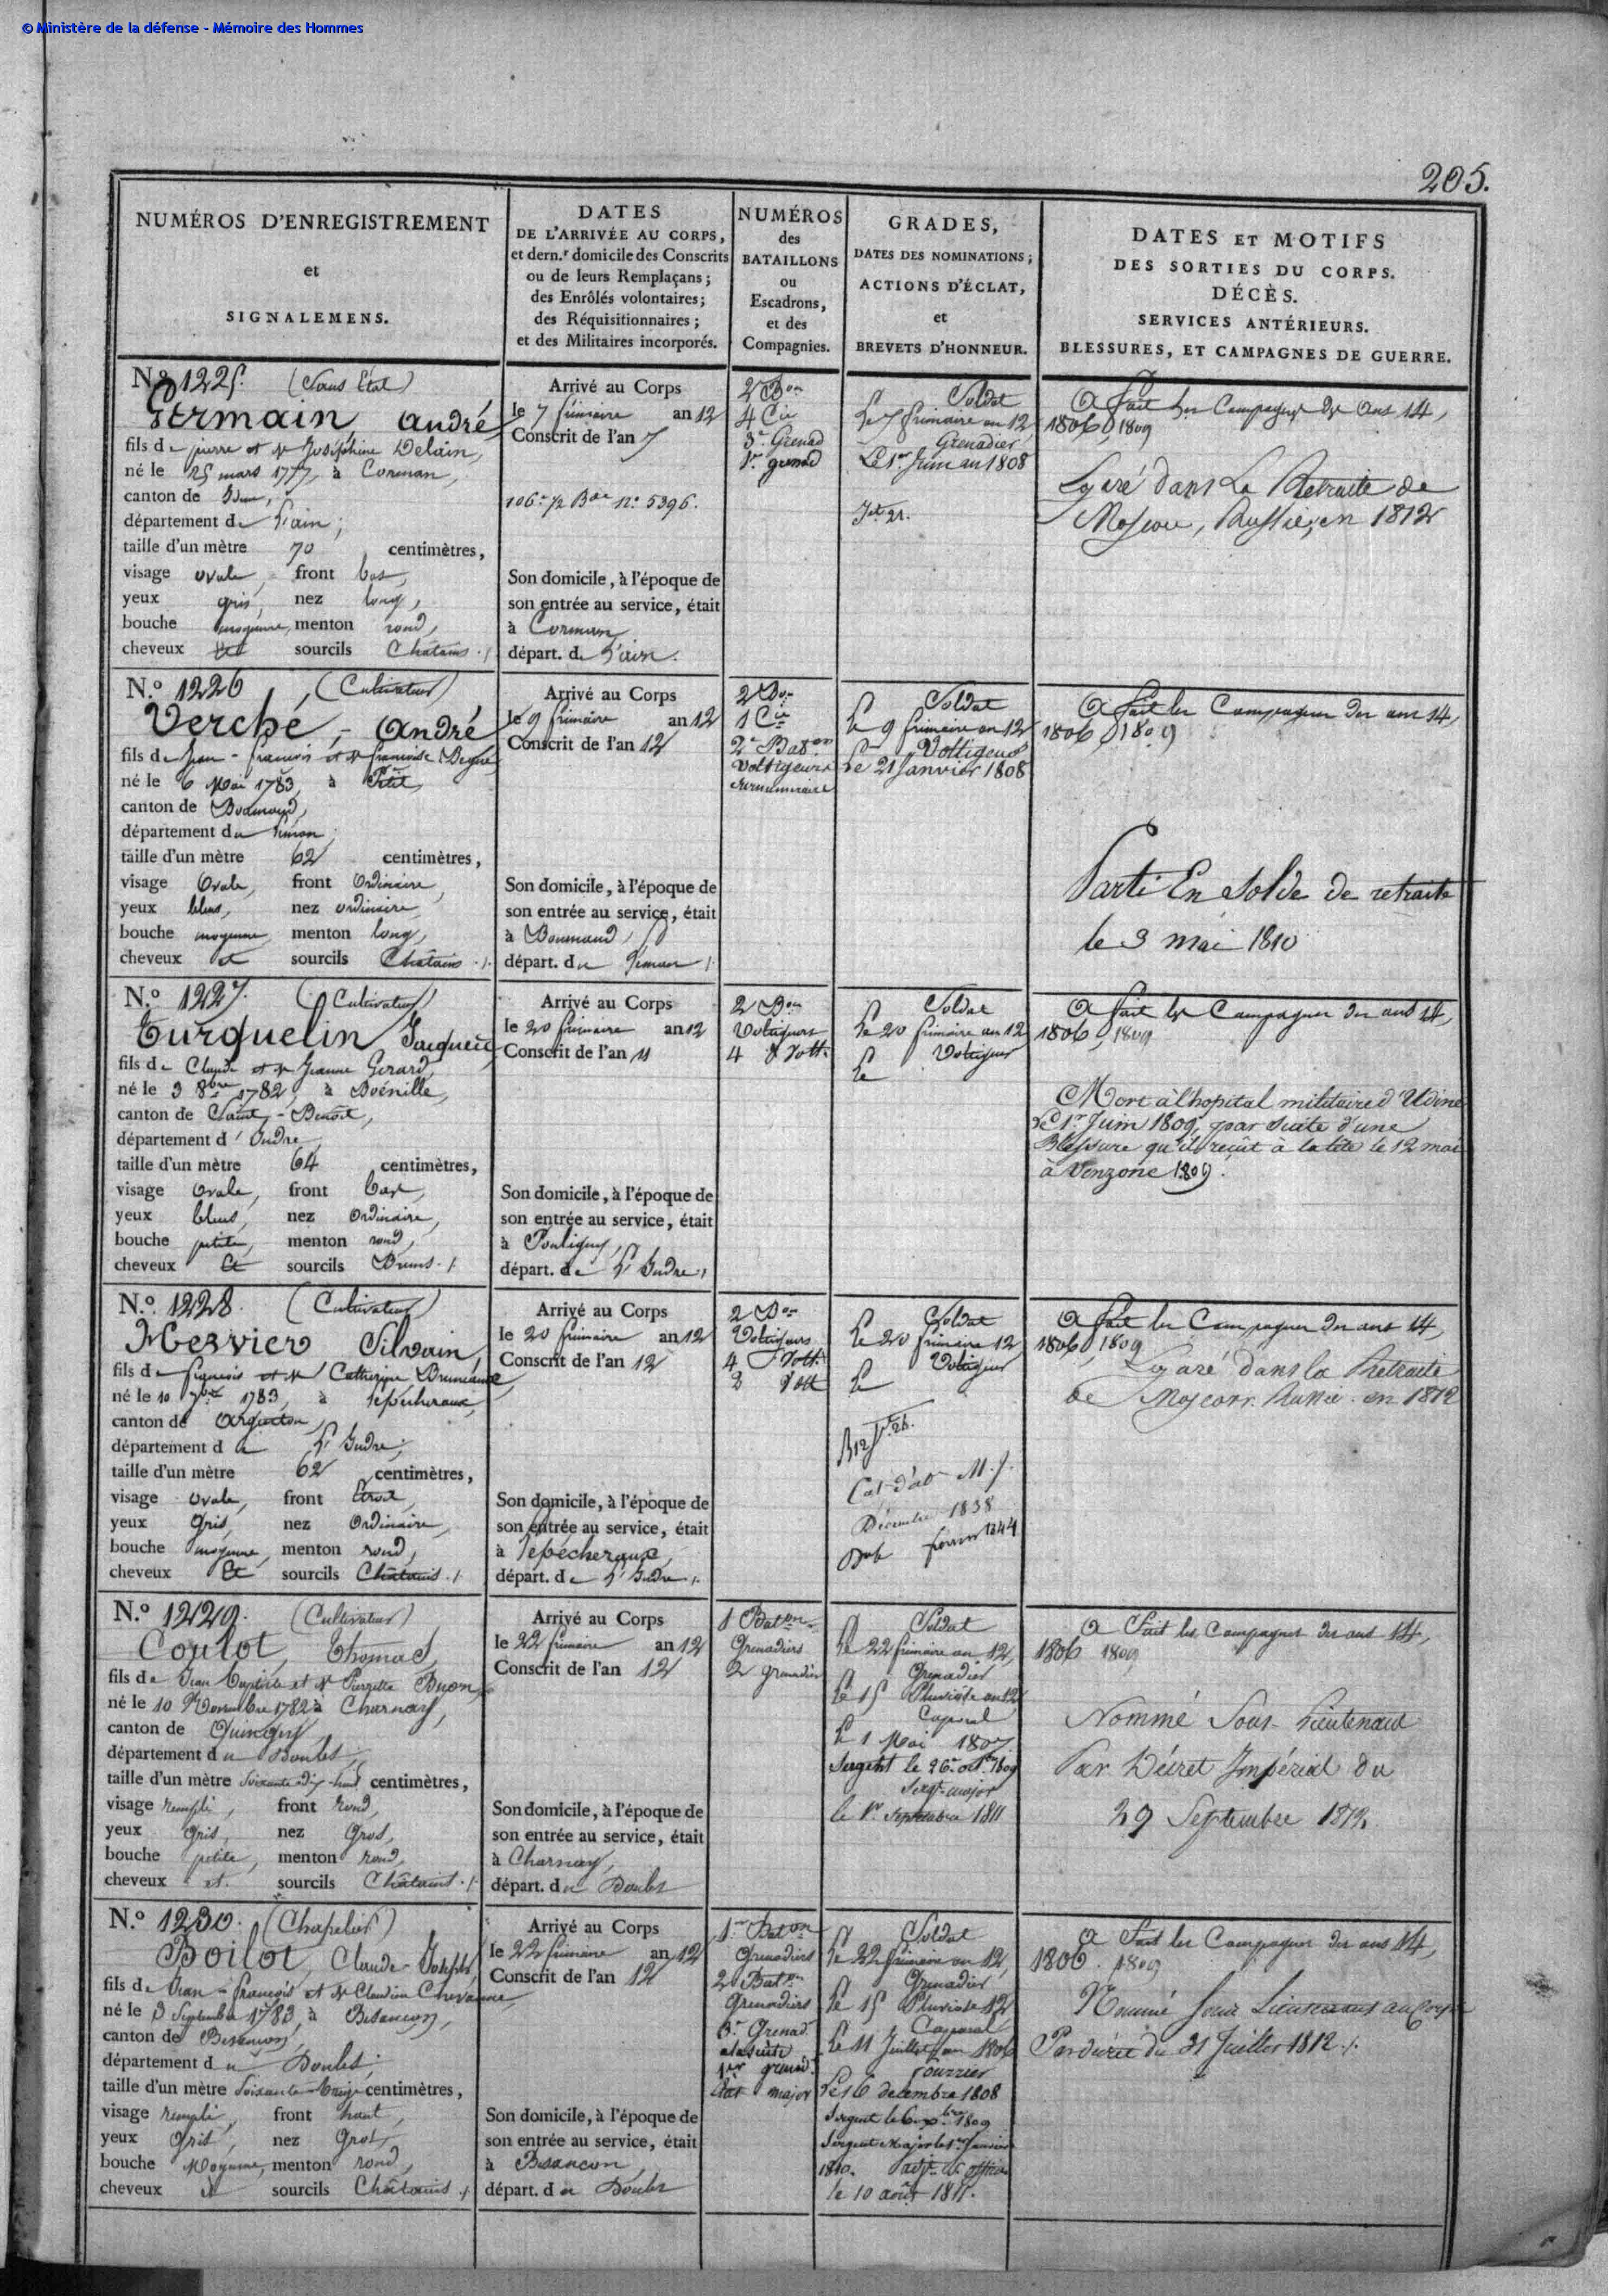 © Ministère de la défense - Mémoire des Hommes
205.
NUMÉROS D'ENREGISTREMENT
et
SIGNALEMENS.
DATES
DE L'ARRIVÉE AU CORPS,
et dern.r domicile des Conscrits
ou de leurs Remplaçans;
des Enrôlés volontaires;
des Réquisitionnaires;
et des Militaires incorporés.
NUMÉROS
des
BATAILLONS
ou
Escadrons,
et des
Compagnies.
GRADES,
DATES DES NOMINATIONS;
ACTIONS D'ÉCLAT,
et
BREVETS D'HONNEUR.
DATES ET MOTIFS
DES SORTIES DU CORPS.
DÉCÈS.
SERVICES ANTÉRIEURS.
BLESSURES, ET CAMPAGNES DE GUERRE.
No 1225. (Sans Etat)
Germain André
fils de pierre et de Joséphine Delain,
né le 25 mars 1777, à Corman,
canton de
département de L'ain;
taille d'un mètre 70 centimètres,
visage ovale, front bas,
yeux gris, nez long,
bouche moyenne, menton rond,
cheveux et sourcils Châtains ./.
Arrivé au Corps
le 7 frimaire an 12
Conscrit de l'an 7
106e 1/2 Bde No 5396.
Son domicile, à l'époque de
son entrée au service, était
à Corman
départ. de L'ain.
2 Bon
4 Cie
3e Grenad
1r grenad
Soldat
Le 7 frimaire an 12
Grenadier
Le 1er Juin an 1808
A fait les Campagnes des ans 14,
1806, 1809
Egaré dans La Retraite de
Moscou, Russie, en 1812
N.o 1226 (Cultivateur)
Verché, André
fils de Jean-francois et de francoise
né le 6 Mai 1783, à
canton de
département du Léman,
taille d'un mètre 62 centimètres,
visage Ovale, front Ordinaire,
yeux bleus, nez ordinaire,
bouche moyenne, menton long,
cheveux et sourcils Châtains ./.
Arrivé au Corps
le 9 frimaire an 12
Conscrit de l'an 12
Son domicile, à l'époque de
son entrée au service, était
à
départ. du Léman ./.
2 Bon
1 Cie
2e Baton
Voltigeurs
Soldat
Le 9 frimaire an 12
Voltigeur
Le 21 Janvier 1808
A fait les Campagnes des ans 14,
1806, 1809
Parti En Solde de retraite
le 3 mai 1810
N.o 1227. (Cultivateur)
Turquelin Jacques
fils de Claude et de Jeanne Gerard,
né le 3 8bre 1782, à
canton de Saint-Benoit,
département d'Indre
taille d'un mètre 64 centimètres,
visage Ovale, front bas,
yeux bleus, nez Ordinaire,
bouche petite, menton rond,
cheveux Et sourcils Bruns ./.
Arrivé au Corps
le 20 frimaire an 12
Conscrit de l'an 11
Son domicile, à l'époque de
son entrée au service, était
à Pouligny,
départ. de L'Indre,
2 Bon
Voltigeurs
4 Volt.
Soldat
Le 20 frimaire an 12
Voltigeur
Le
A fait les Campagnes des ans 14,
1806, 1809
Mort à l'hopital militaire d'Udine
Le 1er Juin 1809, par suite d'une
Blessure qu'il reçut à la tête le 12 mai
à Venzone 1809.
N.o 1228. (Cultivateur)
Mesvier Silvain,
fils de françois et de Catherine
né le 10 7bre 1783, à lepécheraux,
canton de Argenton,
département de L'Indre,
taille d'un mètre 62 centimètres,
visage ovale, front Etroit,
yeux Gris, nez Ordinaire,
bouche moyenne, menton rond,
cheveux Et sourcils Châtains ./.
Arrivé au Corps
le 20 frimaire an 12
Conscrit de l'an 12
Son domicile, à l'époque de
son entrée au service, était
à lepécheraux,
départ. de L'Indre ./.
2 Bon
Voltigeurs
4 Volt.
2 Volt
Soldat
Le 20 frimaire 12
Voltigeur
Le
Décembre 1838
1844
A fait les Campagnes des ans 14,
1806, 1809
Egaré dans la Retraite
de Moscou. Russie. en 1812
N.o 1229. (Cultivateur)
Coulot, Thomas,
fils de Jean Baptiste et de Pierrette Buon,
né le 10 Novembre 1782 à Charnay,
canton de Quingey,
département du Doubs,
taille d'un mètre Soixante-dix-huit centimètres,
visage rempli, front rond,
yeux Gris, nez Gros,
bouche petite, menton rond,
cheveux et sourcils Châtains ./.
Arrivé au Corps
le 22 frimaire an 12
Conscrit de l'an 12
Son domicile, à l'époque de
son entrée au service, était
à Charnay,
départ. du Doubs
1 Baton
Grenadiers
2 grenadier
Soldat
Le 22 frimaire an 12,
Grenadier
Le 15 Pluviôse an 12
Caporal
Le 1 Mai 1807
Sergent le 26 1809
Sergt-major
le 1er Septembre 1811
A Fait les Campagnes des ans 14,
1806 1809
Nommé Sous-Lieutenant
Par Décret Impérial du
29 Septembre 1812.
N.o 1230. (Chapelier)
Boilot, Claude-Joseph,
fils de Jean-François et de Claudine Chevanne,
né le 3 Septembre 1783, à Besançon,
canton de Besançon,
département du Doubs,
taille d'un mètre Soixante-treize centimètres,
visage rempli, front haut,
yeux Gris, nez Gros,
bouche Moyenne, menton rond,
cheveux et sourcils Châtains ./.
Arrivé au Corps
le 22 frimaire an 12
Conscrit de l'an 12
Son domicile, à l'époque de
son entrée au service, était
à Besancon
départ. du Doubs
1er Baton
Grenadiers
2 Baton
Grenadiers
3e Grenad.
à la suite
1er grenad.
état major
Soldat
Le 22 frimaire an 12,
Grenadier
Le 15 Pluviôse 12
Caporal
Le 11 Juillet an 1806
fourrier
Le 16 decembre 1808
Sergent le 6 1809
Sergent Major le 1er Janvier
1810. adjt S. officier
le 10 août 1811.
A Fait les Campagnes des ans 14,
1806. 1809
Nommé Sous Lieutenant au Corps
Par décret du 31 Juillet 1812 ./.